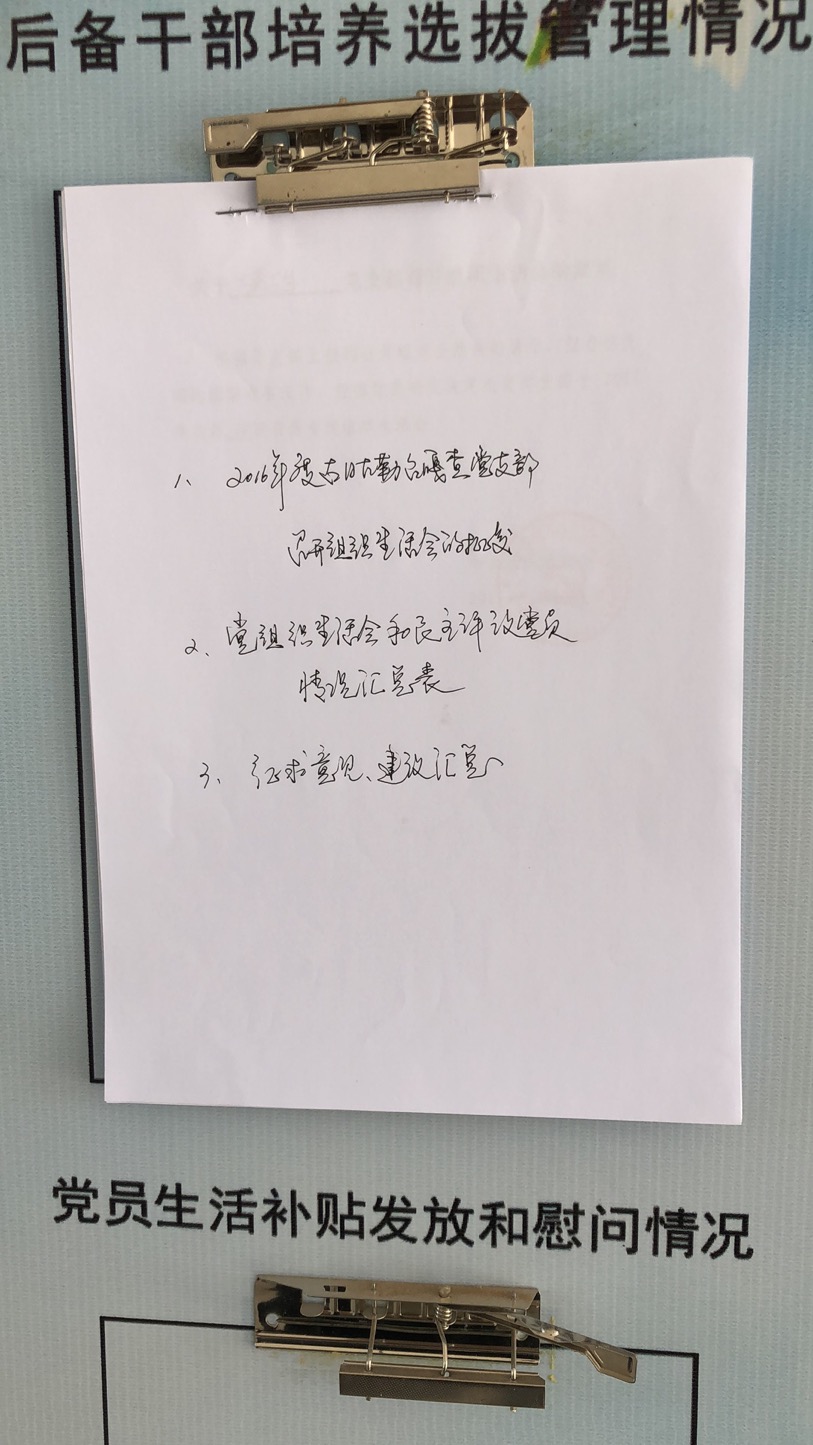 后备干部培养选拔管理情况
1、2016年度古日古勒台嘎查党支部
召开组织生活会的批复
2、党组织生活会和民主评议党员
情况汇总表
3、征求意见、建议汇总
党员生活补贴发放和慰问情况